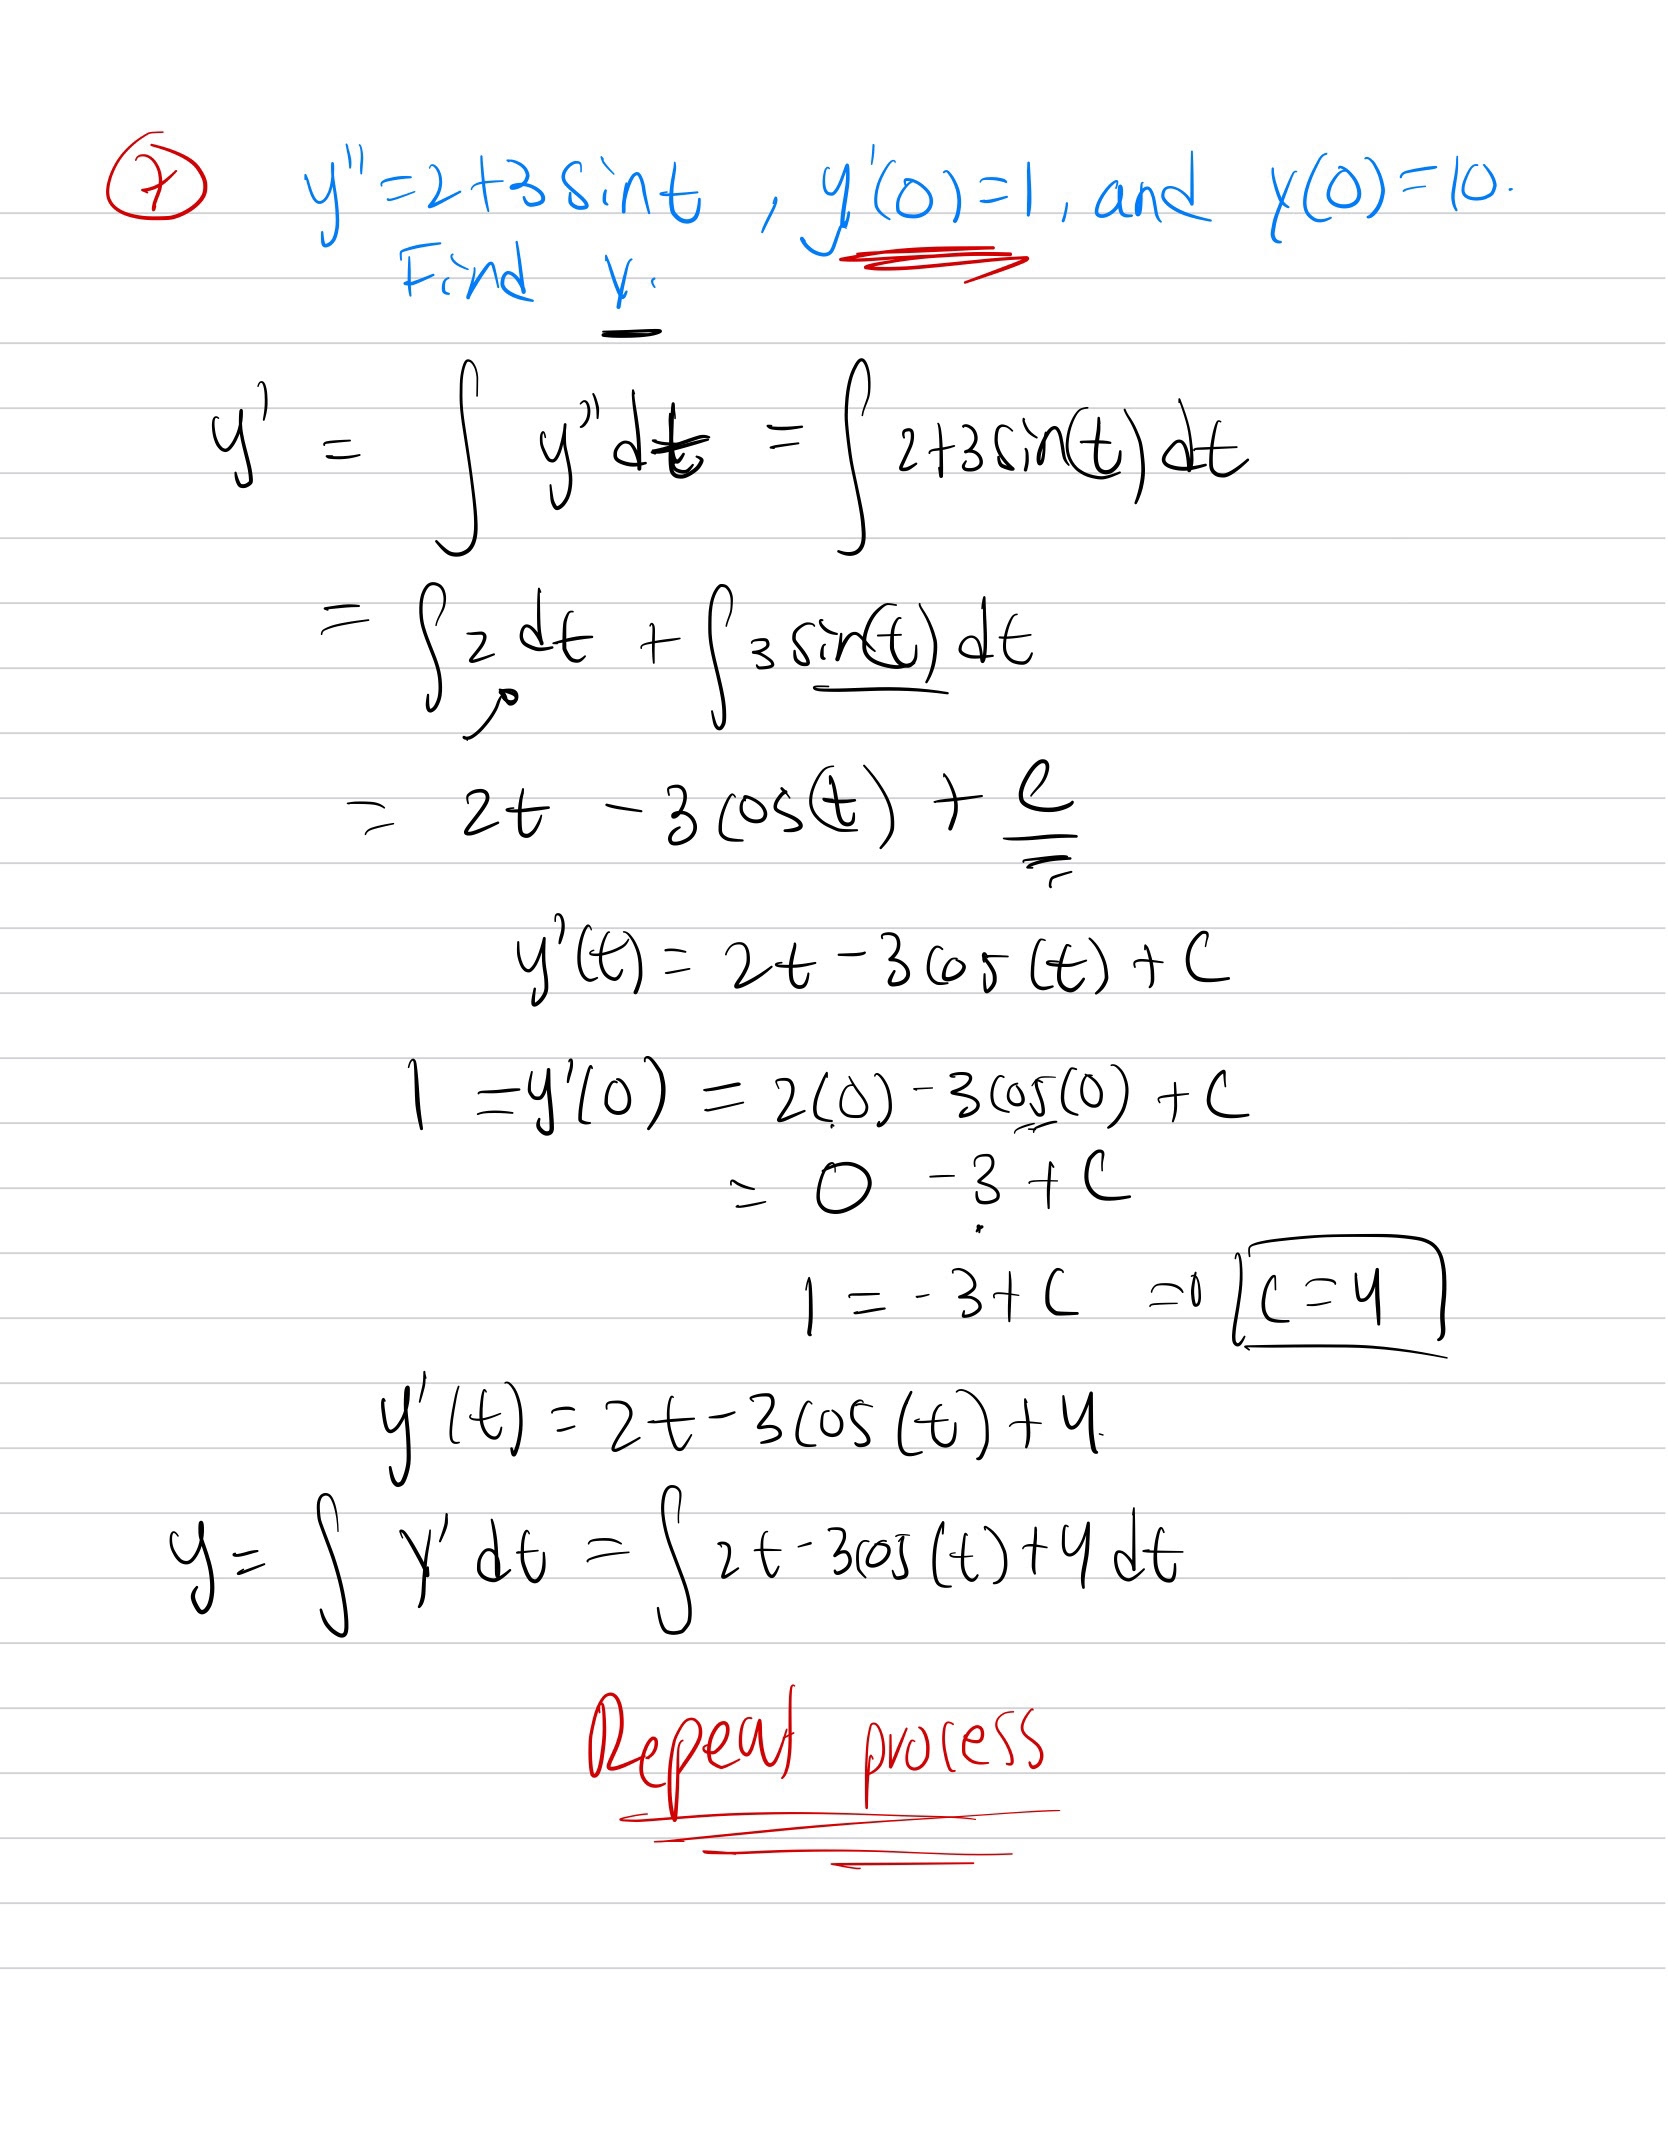 7 y''=2+3sint, y'(0)=1, and y(0)=10.
Find y.
y' = ∫ y'' dt = ∫ 2+3sin(t) dt
= ∫ 2 dt + ∫ 3 sin(t) dt
= 2t - 3cos(t) + C
y'(t) = 2t - 3cos(t) + C
1 = y'(0) = 2(0) - 3cos(0) + C
= 0 - 3 + C
1 = -3 + C => C = 4
y'(t) = 2t - 3cos(t) + 4
y = ∫ y' dt = ∫ 2t - 3cos(t) + 4 dt
Repeat process